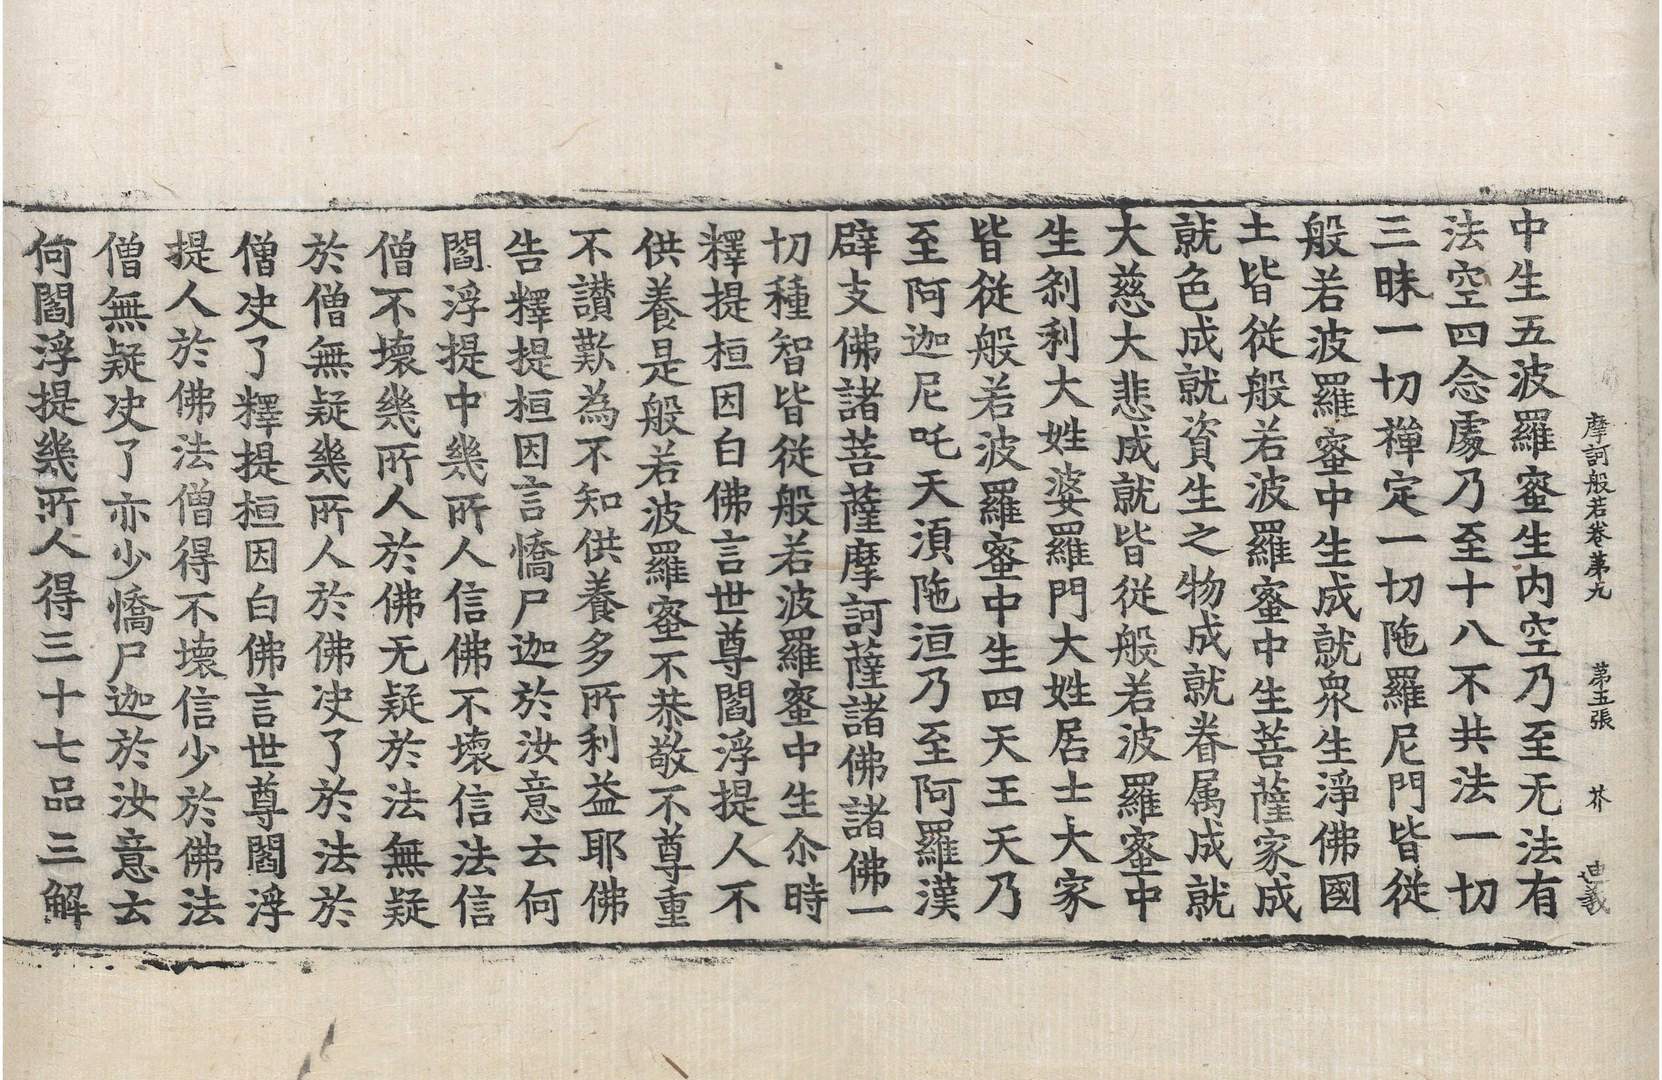 摩訶般若卷第九 第五張 芥 迪義
中生五波羅蜜生内空乃至无法有
法空四念處乃至十八不共法一切
三昧一切禪定一切陁羅尼門皆從
般若波羅蜜中生成就衆生淨佛國
土皆從般若波羅蜜中生菩薩家成
就色成就資生之物成就眷属成就
大慈大悲成就皆從般若波羅蜜中
生刹利大姓婆羅門大姓居士大家
皆從般若波羅蜜中生四天王天乃
至阿迦尼吒天湏陁洹乃至阿羅漢
辟支佛諸菩薩摩訶薩諸佛諸佛一
切種智皆從般若波羅蜜中生尒時
釋提桓因白佛言世尊閻浮提人不
供養是般若波羅蜜不恭敬不尊重
不讃歎為不知供養多所利益耶佛
告釋提桓因言憍尸迦於汝意云何
閻浮提中幾所人信佛不壞信法信
僧不壞幾所人於佛无疑於法無疑
於僧無疑幾所人於佛决了於法於
僧决了釋提桓因白佛言世尊閻浮
提人於佛法僧得不壞信少於佛法
僧無疑决了亦少憍尸迦於汝意云
何閻浮提幾所人得三十七品三解